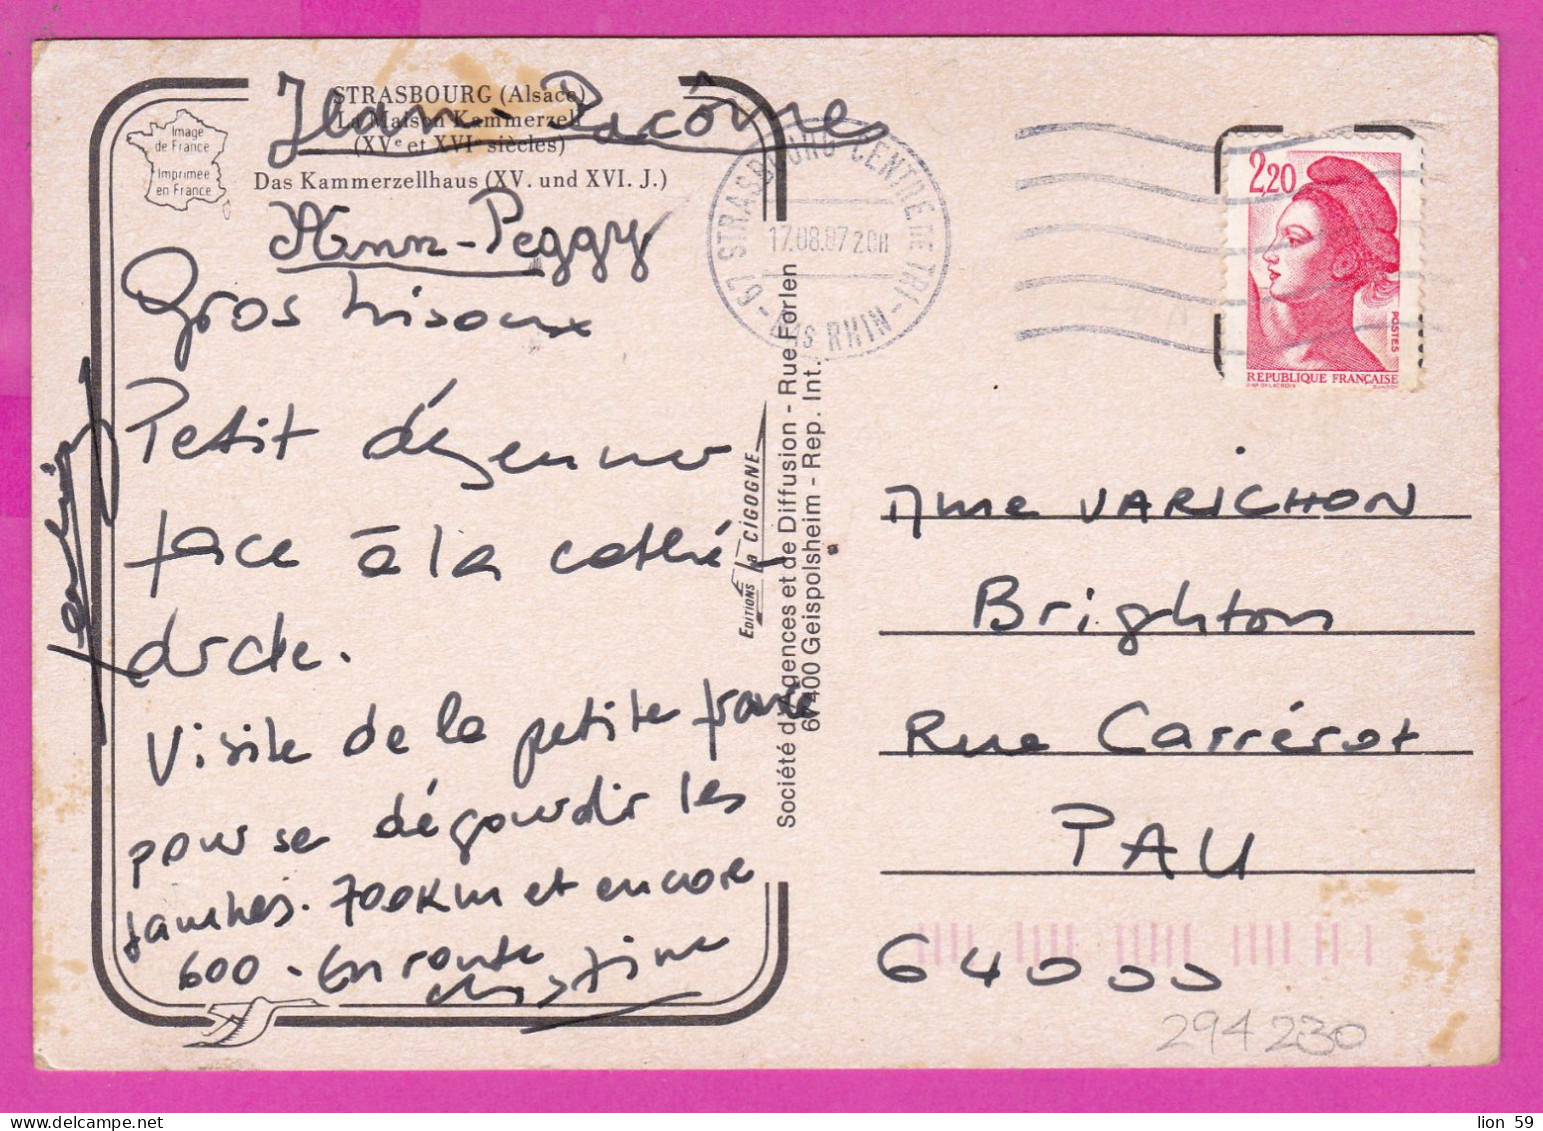 STRASBOURG (Alsace)
La Maison Kammerzell
(XVe et XVIe siècles)
Das Kammerzellhaus (XV. und XVI. J.)
Image
de France
Imprimée
en France
Jean-
Ann-Peggy
Gros bisoux
Petit déjeuner
face à la cathé-
drale.
Visite de la petite france
pour se dégourdir les
jambes. 700Km et encore
600 - En route
Christine
EDITIONS La CIGOGNE
Société d'Agences et de Diffusion - Rue Forlen
67400 Geispolsheim - Rep. Int.
67 STRASBOURG CENTRE DE TRI - BAS RHIN -
17.08.87 20H
2,20
POSTES
REPUBLIQUE FRANÇAISE
Mme VARICHON
Brighton
Rue Carrérot
PAU
64000
294230
lion 59